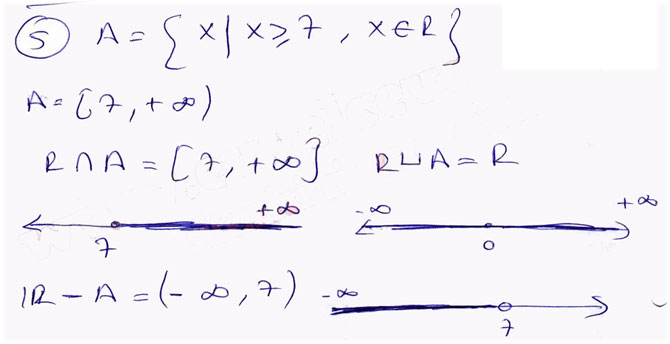 5 A = { x | x ≥ 7 , x ∈ R }
A = [7, +∞)
R ∩ A = [7, +∞] R ∪ A = R
7 +∞ -∞ 0 +∞
IR - A = (-∞, 7) -∞ 7